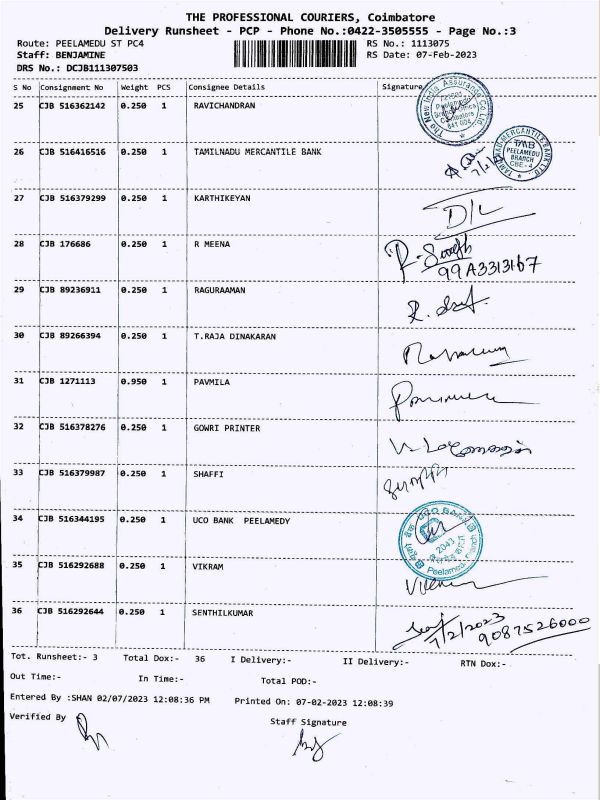 THE PROFESSIONAL COURIERS, Coimbatore
Delivery Runsheet - PCP - Phone No.:0422-3505555 - Page No.:3
Route: PEELAMEDU ST PC4
RS No.: 1113075
Staff: BENJAMINE
RS Date: 07-Feb-2023
DRS No.: DCJB111307503
S No Consignment No Weight PCS Consignee Details Signature
25 CJB 516362142 0.250 1 RAVICHANDRAN
The New India Assurance Co Ltd
26 CJB 516416516 0.250 1 TAMILNADU MERCANTILE BANK
TAMILNAD MERCANTILE BANK LTD.
TMB
PEELAMEDU
BRANCH
CBE - 4
27 CJB 516379299 0.250 1 KARTHIKEYAN
D/L
28 CJB 176686 0.250 1 R MEENA
29 CJB 89236911 0.250 1 RAGURAAMAN
30 CJB 89266394 0.250 1 T.RAJA DINAKARAN
31 CJB 1271113 0.950 1 PAVMILA
32 CJB 516378276 0.250 1 GOWRI PRINTER
33 CJB 516379987 0.250 1 SHAFFI
34 CJB 516344195 0.250 1 UCO BANK PEELAMEDY
UCO BANK
2043
Peelamedu Branch
35 CJB 516292688 0.250 1 VIKRAM
36 CJB 516292644 0.250 1 SENTHILKUMAR
7/2/2023
9087526000
Tot. Runsheet:- 3 Total Dox:- 36 I Delivery:- II Delivery:- RTN Dox:-
Out Time:- In Time:- Total POD:-
Entered By :SHAN 02/07/2023 12:08:36 PM Printed On: 07-02-2023 12:08:39
Verified By Staff Signature